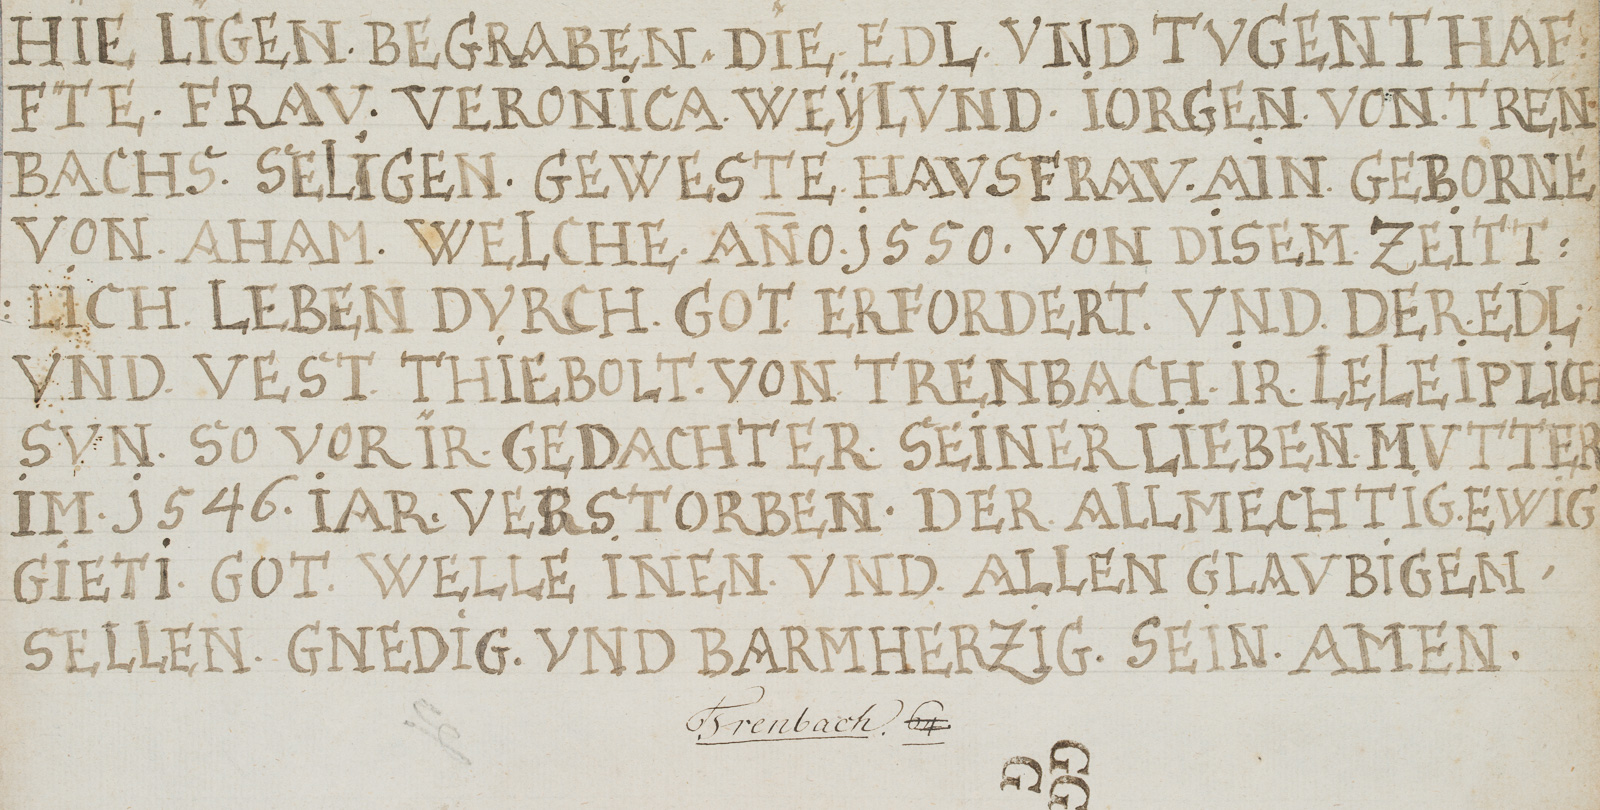 HIE LIGEN. BEGRABEN. DIE. EDL. VND TVGENTHAF:
FTE. FRAV. VERONICA. WEŸLVND. IORGEN. VON. TREN
BACHS. SELIGEN. GEWESTE. HAVSFRAV. AIN. GEBORNE
VON. AHAM. WELCHE. AÑO. 1550. VON DISEM ZEITT:
: LICH. LEBEN DVRCH. GOT. ERFORDERT. VND. DER. EDL.
VND. VEST. THIEBOLT. VON. TRENBACH. IR. LELEIPLICH
SVN. SO VOR IR. GEDACHTER. SEINER LIEBEN. MVTTER
IM. 1546. IAR. VERSTORBEN. DER. ALLMECHTIG. EWIG
GIETI. GOT. WELLE INEN. VND. ALLEN GLAVBIGEN,
SELLEN. GNEDIG. VND BARMHERZIG. SEIN. AMEN.
Trenbach. 64
G G
G